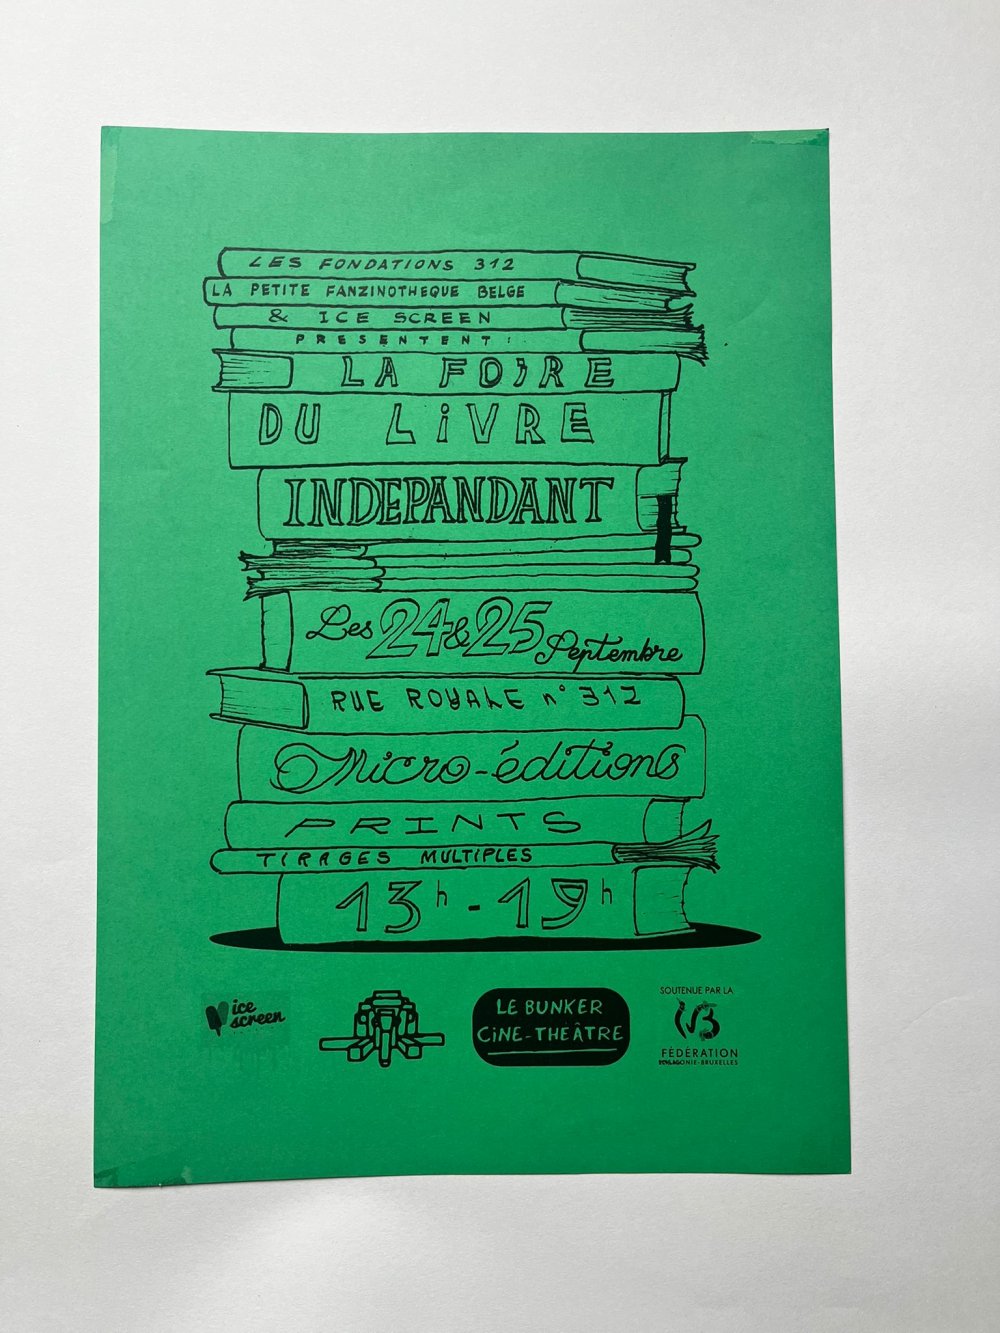 LES FONDATIONS 312
LA PETITE FANZINOTHEQUE BELGE
& ICE SCREEN
PRESENTENT :
LA FOIRE
DU LiVRE
INDEPANDANT
Les 24 & 25 Septembre
RUE ROYALE n° 312
Micro-éditions
PRINTS
TIRAGES MULTIPLES
13h - 19h
ice
screen
LE BUNKER
CiNE-THEÂTRE
SOUTENUE PAR LA
FÉDÉRATION